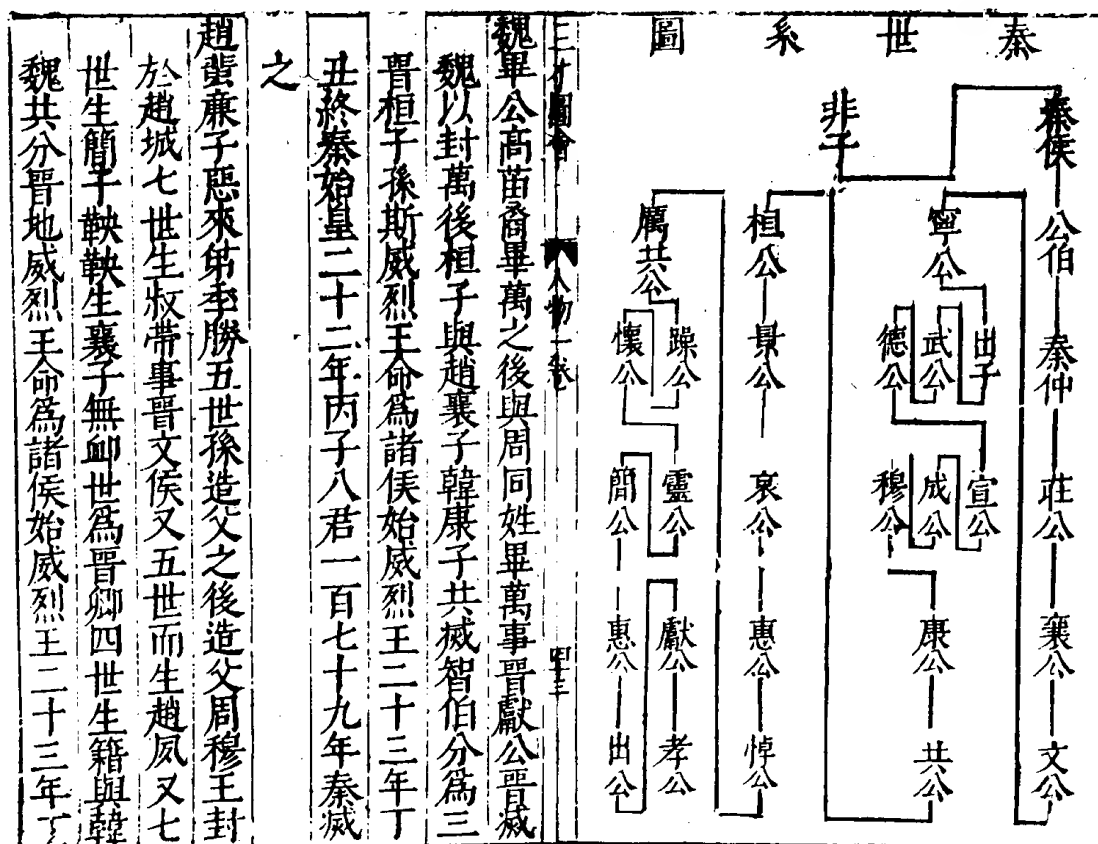 秦世系圖
非子
秦侯
公伯
秦仲
莊公
襄公
文公
寧公
出子
武公
德公
宣公
成公
穆公
康公
共公
桓公
景公
哀公
惠公
悼公
厲共公
躁公
懷公
靈公
簡公
惠公
出公
獻公
孝公
三才圖會
人物一卷
四十三
魏畢公高苗裔畢萬之後與周同姓畢萬事晉獻公晉滅
魏以封萬後桓子與趙襄子韓康子共滅智伯分爲三
晉桓子孫斯威烈王命爲諸侯始威烈王二十三年丁
丑終秦始皇二十二年丙子八君一百七十九年秦滅
之
趙蜚廉子惡來弟季勝五世孫造父之後造父周穆王封
於趙城七世生叔帶事晉文侯又五世而生趙夙又七
世生簡子鞅鞅生襄子無卹世爲晉卿四世生籍與韓
魏共分晉地威烈王命爲諸侯始威烈王二十三年丁